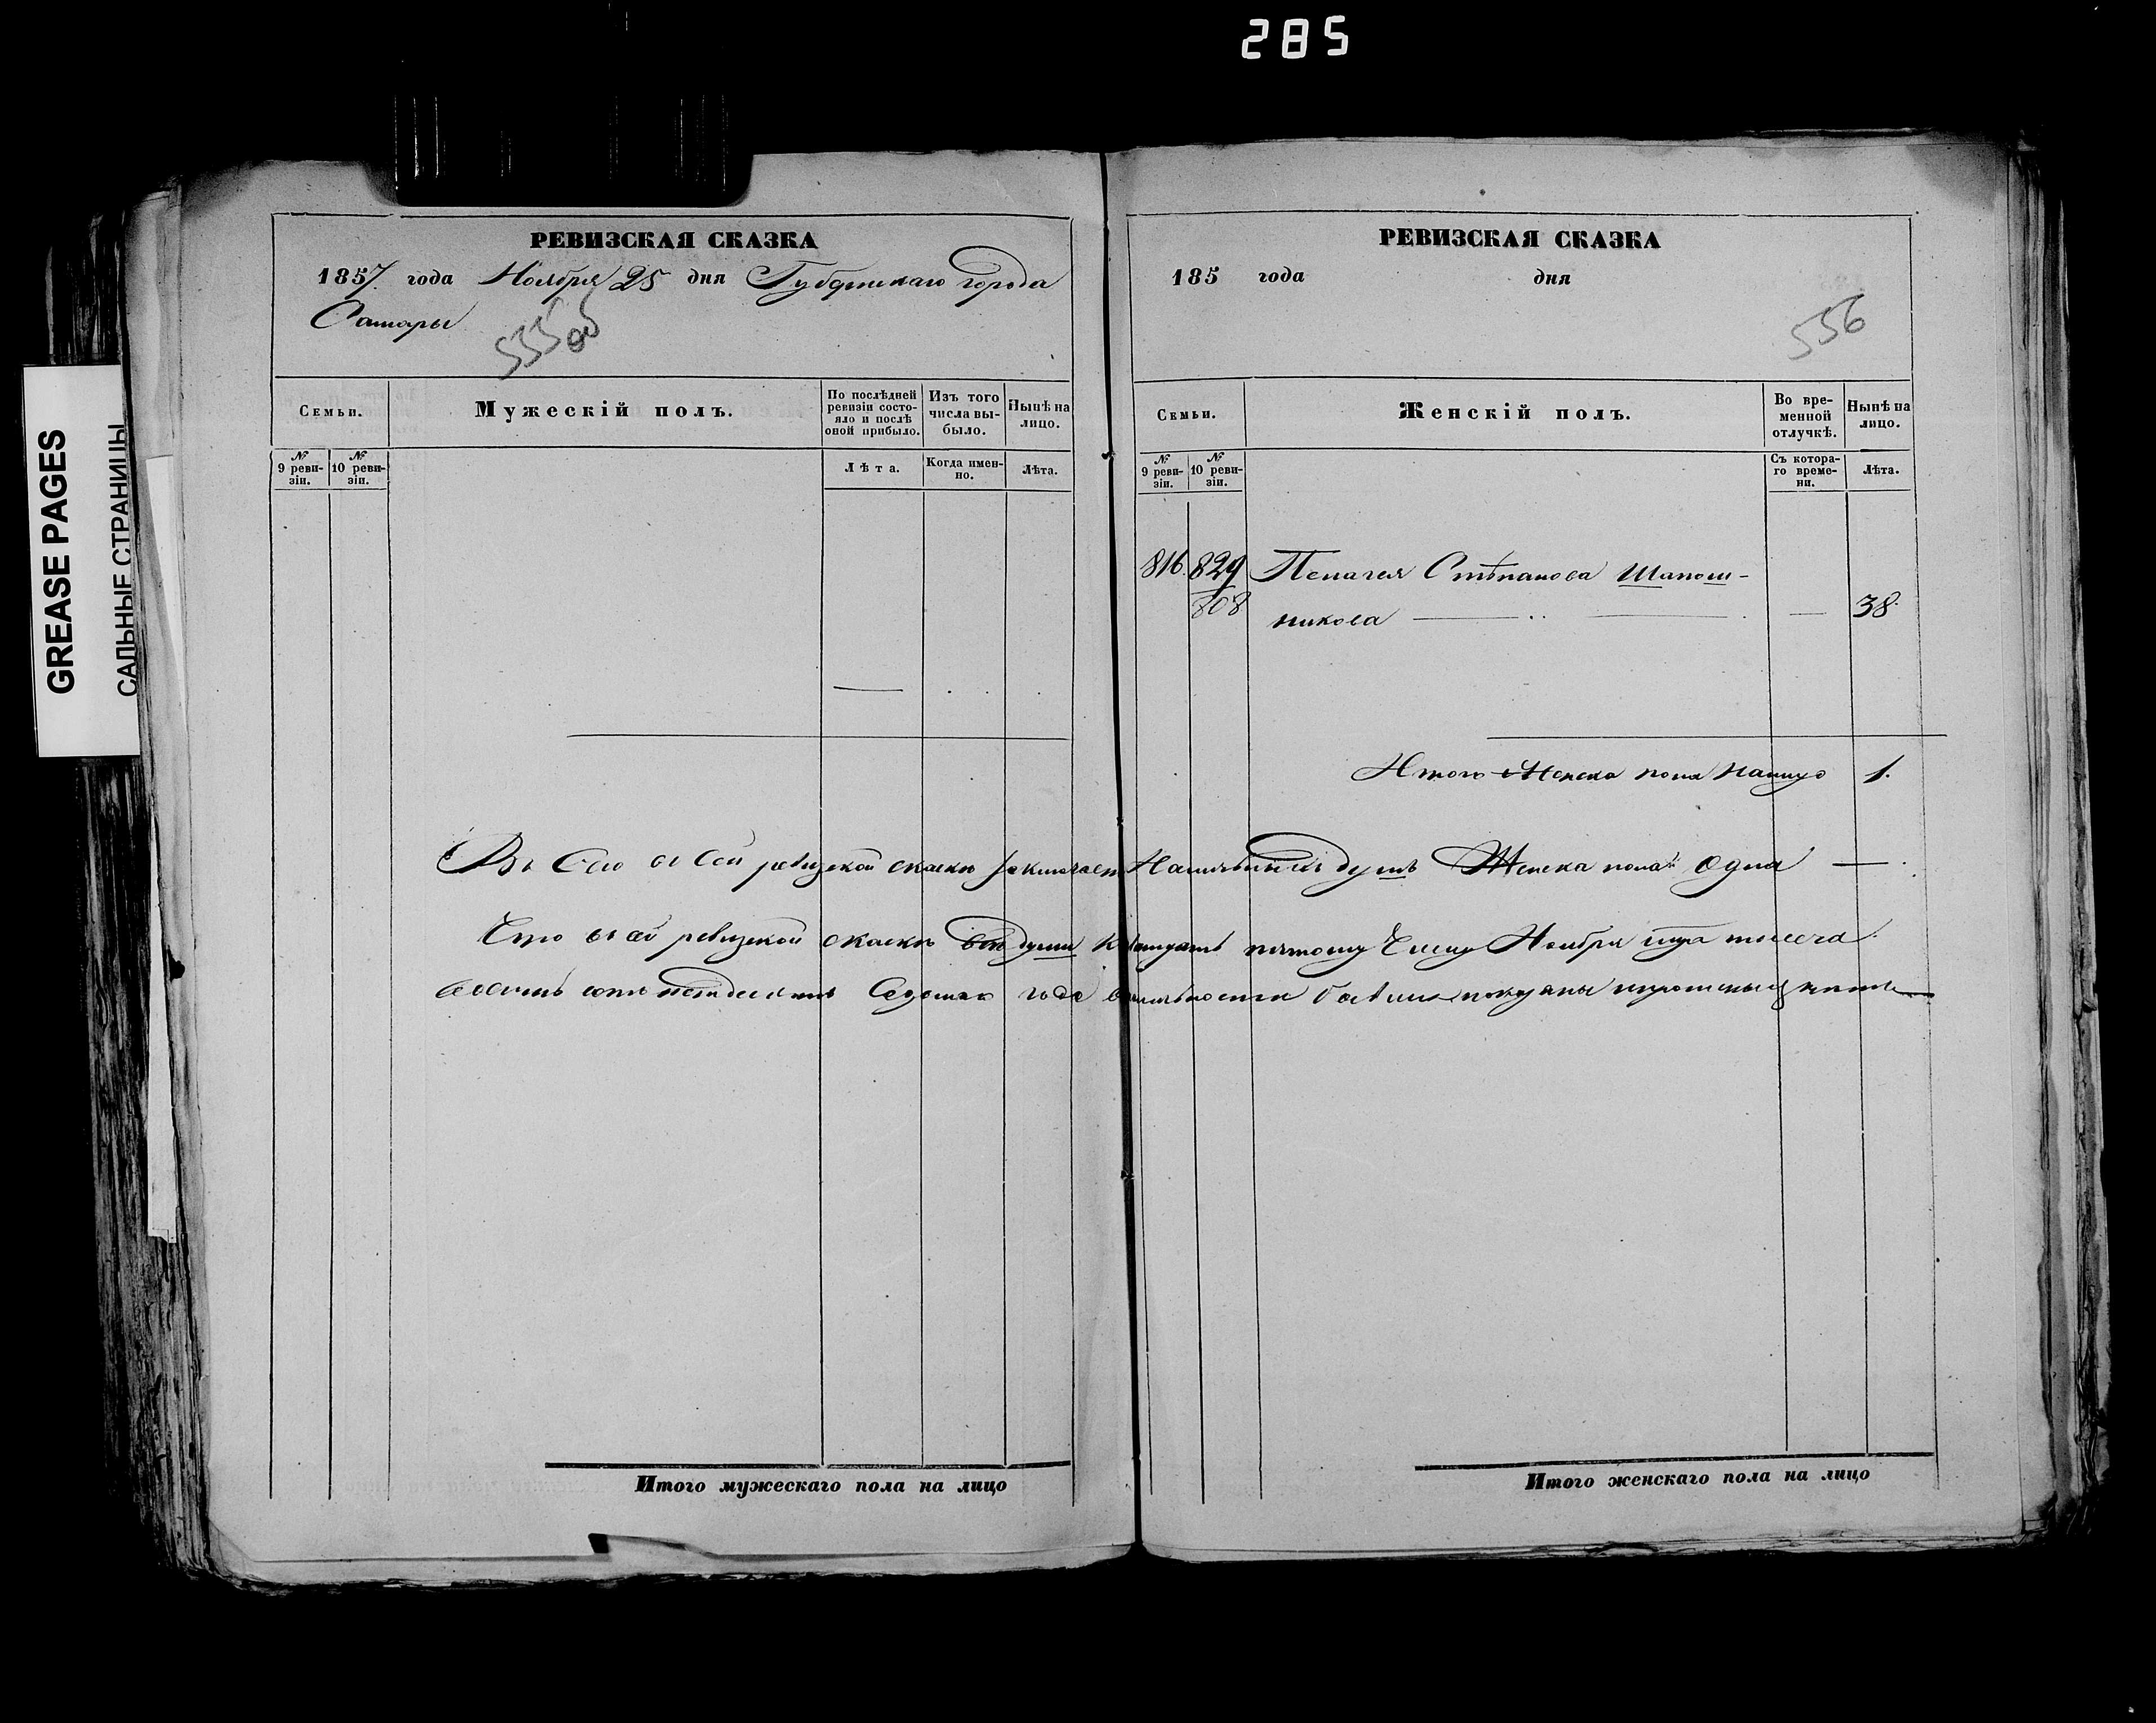 285
GREASE PAGES
САЛЬНЫЕ СТРАНИЦЫ
РЕВИЗСКАЯ СКАЗКА
1857 года Ноября 25 дня Губернскаго города
Самары
555 об
Семьи.
Мужескій полъ.
По послѣдней ревизіи состояло и послѣ оной прибыло.
Изъ того числа выбыло.
Нынѣ на лицо.
№ 9 ревизіи.
№ 10 ревизіи.
Лѣта.
Когда именно.
Лѣта.
РЕВИЗСКАЯ СКАЗКА
185 года дня
556
Семьи.
Женскій полъ.
Во временной отлучкѣ.
Нынѣ на лицо.
№ 9 ревизіи.
№ 10 ревизіи.
Съ котораго времени.
Лѣта.
816. 829 Пелагея Степанова Шапош-
808 никова — 38.
Итого Женска пола налицо 1.
Въ сей ревизской сказки заключает Наличныхъ душъ Женска пола одна —
Что в сей ревизской сказки всѣ души къ двадцать пятому Числу Ноября тысеча
восемь сотъ пятдесятъ Седмаго года наличности показаны
Итого мужескаго пола на лицо
Итого женскаго пола на лицо